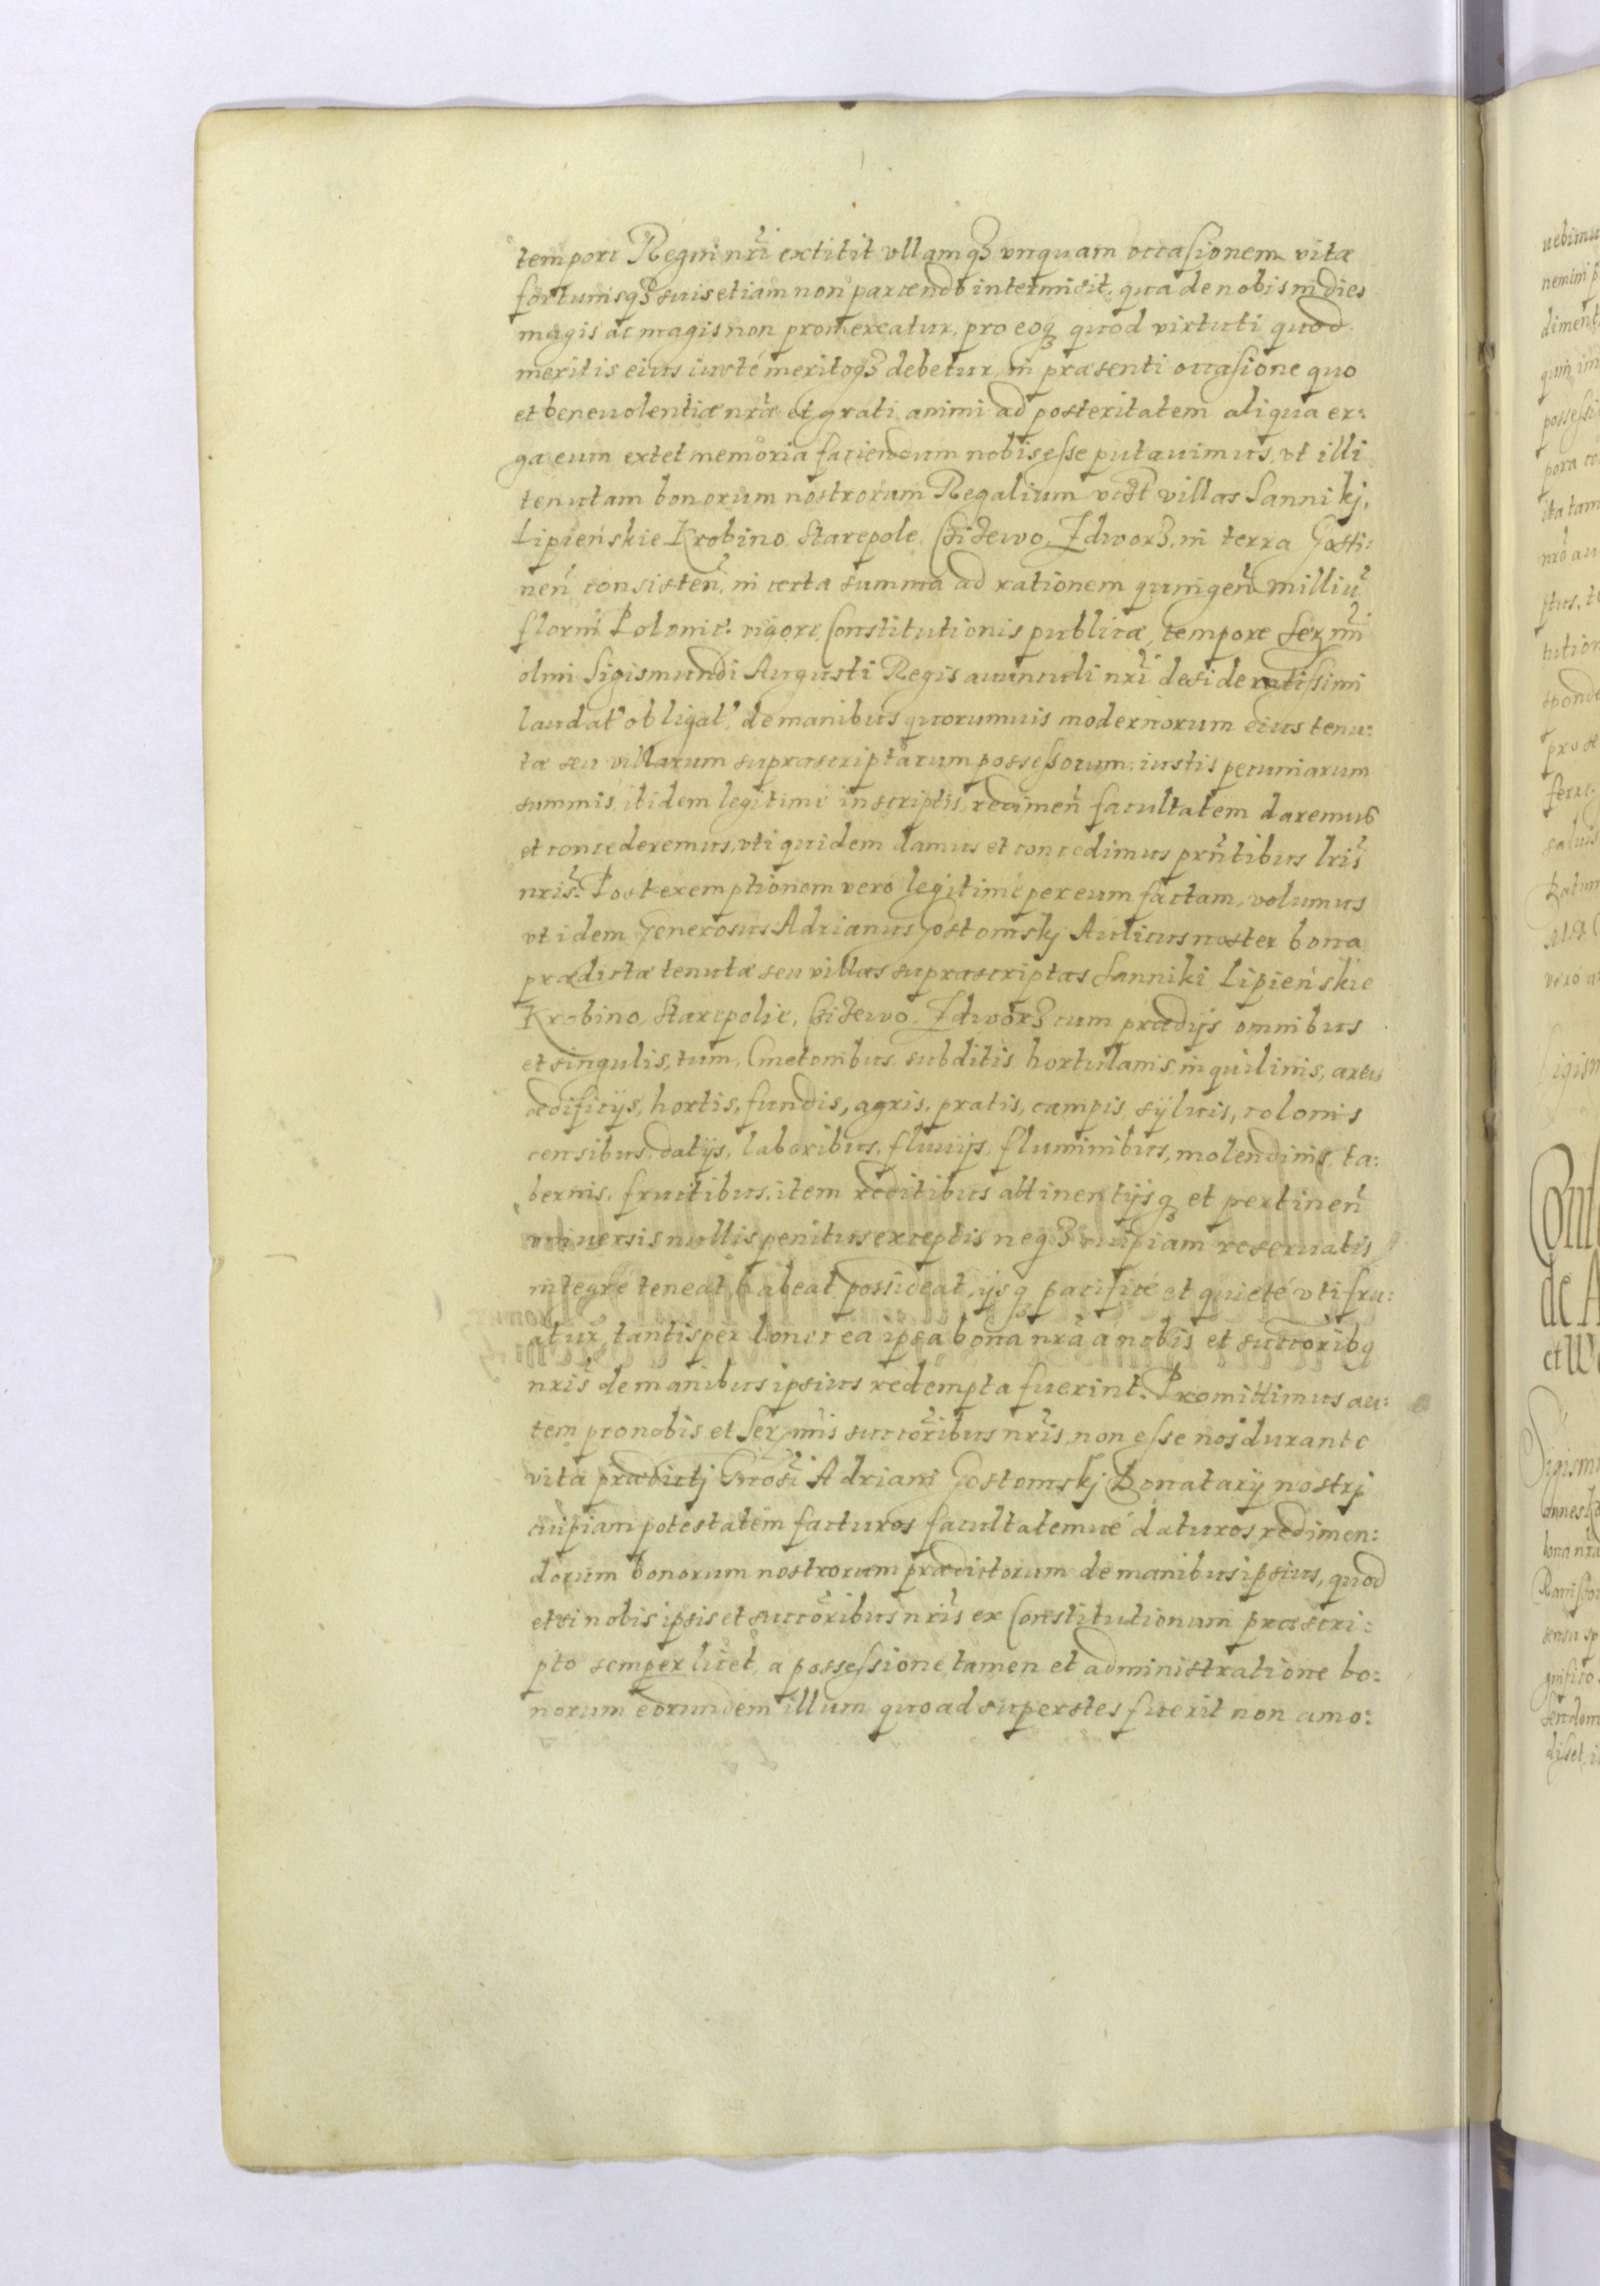 tempore Regni nrĩ extitit vllamqʒ vnquam occasionem vitæ
fortunisqʒ suis etiam non parcendo intermisit, qua de nobis in dies
magis ac magis non promereatur, pro eoqʒ quod virtuti quod
meritis eius iusté meritoqʒ debetur, in præsenti occasione quo
et beneuolentiæ nrãe et grati animi ad posteritatem aliqua er:
ga eum extet memoria faciendum nobis esse putauimus, vt illi
tenutam bonorum nostrorum Regalium vidlt villas Sannikj,
Lipieńskie Krobino Starepole, Zdworʒ, in terra Gosti:
nen̄ consisten̄, in certa summa ad rationem quingen̄ milliū
floren̄ Polonic: vigore Constitutionis publicæ, tempore Ser͠mi
olim Sigismundi Augusti Regis auunculi nrĩ desideratissimi
laudat' obligat', de manibus quorumuis modernorum eius tenu:
tæ seu villarum suprascriptarum possessorum: iustis pecuniarum
summis itidem legitimé inscriptis, redimen̄ facultatem daremus
et concederemus, vti quidem damus et concedimus prñtibus lrĩs
nrĩs: Post exemptionem vero legitimé per eum factam, volumus
vt idem Generosus Adrianus Gostomskj Aulicus noster bona
prædictæ tenutæ seu villas suprascriptas Sanniki Lipieńskie
Krobino, Starepolie, Zdworʒ cum prædijs omnibus
et singulis, tum Cmetonibus subditis hortulanis, inquilinis, areis
ædificijs, hortis, fundis, agris, pratis, campis, syluis, colonis
censibus, datijs, laboribus, fluuijs, fluminibus, molendinis, ta:
bernis, fructibus, item reditibus attinentijsqʒ et pertinen̄
vniuersis nullis penitus exceptis neqʒ cuipiam reseruatis
integre teneat habeat possideat, ijsqʒ pacificé et quieté vti fru:
atur, tantisper donec ea ipsa bona nrã a nobis et succoribq
nrĩs de manibus ipsius redempta fuerint. Promittimus au:
tem pro nobis et Ser͠mis succoribus nrĩs, non esse nos durante
vita prædictj Gñosi Adriani Gostomskj Donatarij nostrj
cuipiam potestatem facturos facultatemué daturos redimen:
dorum bonorum nostrorum prædictorum de manibus ipsius, quod
etsi nobis ipsis et succoribus nrĩs ex Constitutionum præscri:
pto semper licet, a possessione tamen et administratione bo:
norum eorundem illum quoad superstes fuerit non amo: